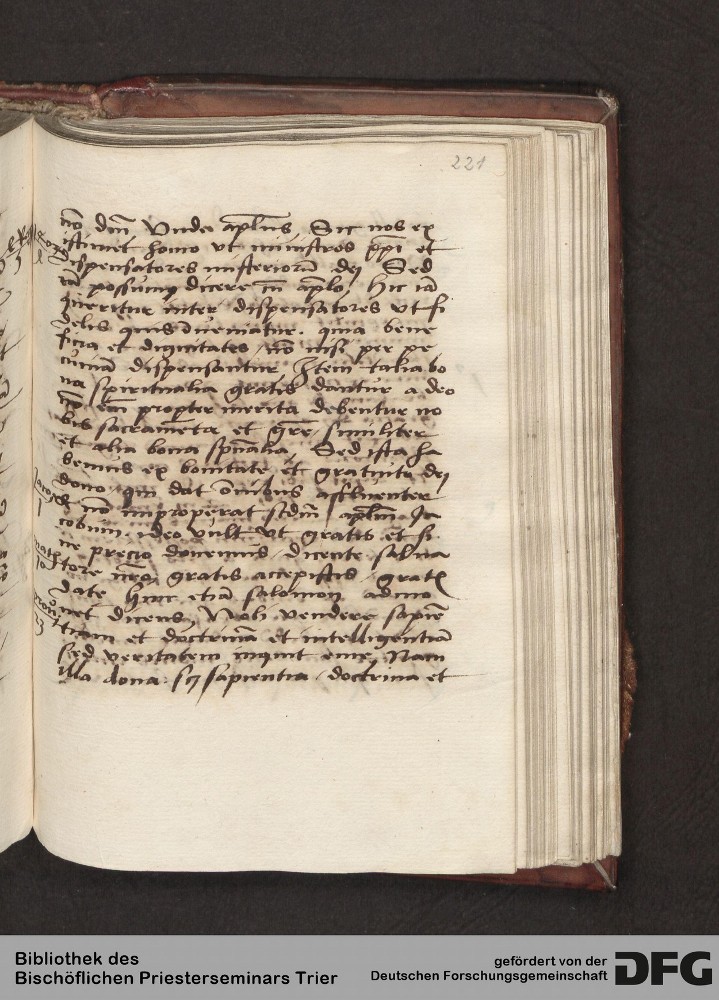 221
nō dm̄ Unde apl̄us, Sic nos ex
istimet homo ut ministros xp̄i et
dispensatores misteriorū dei Sed
iā possumꝰ dicere cū aplo, hic iā
queritur inter dispensatores ut fi
delis quis inveniatur. quia bene
ficia et dignitates nō nisi per pe
cuniā dispensantur, Item talia bo
na spiritualia gratis dantur a deo
nō em̄ propter merita debentur no
bis sacramēta et gr̄e similiter
et alia bona spūalia, Sed ista ha
bemus ex bonitate et gratuito dei
dono qui dat om̄ibus affluenter
et nō improperat scdm̄ aplm̄ Ja
cobum. ideo vult ut gratis et si
ne precio donemus, dicente salva
tore nr̄o, gratis accepistis grat
date hinc etiā salomon admo
net dicens, Noli vendere sapiē
tiam et doctrinā et intelligentiā
sed veritatem inquit eme, Nam
illa dona scꝫ sapientia, doctrina et
Jaco
1
math
10
prou
23
Bibliothek des
Bischöflichen Priesterseminars Trier
gefördert von der
Deutschen Forschungsgemeinschaft
DFG